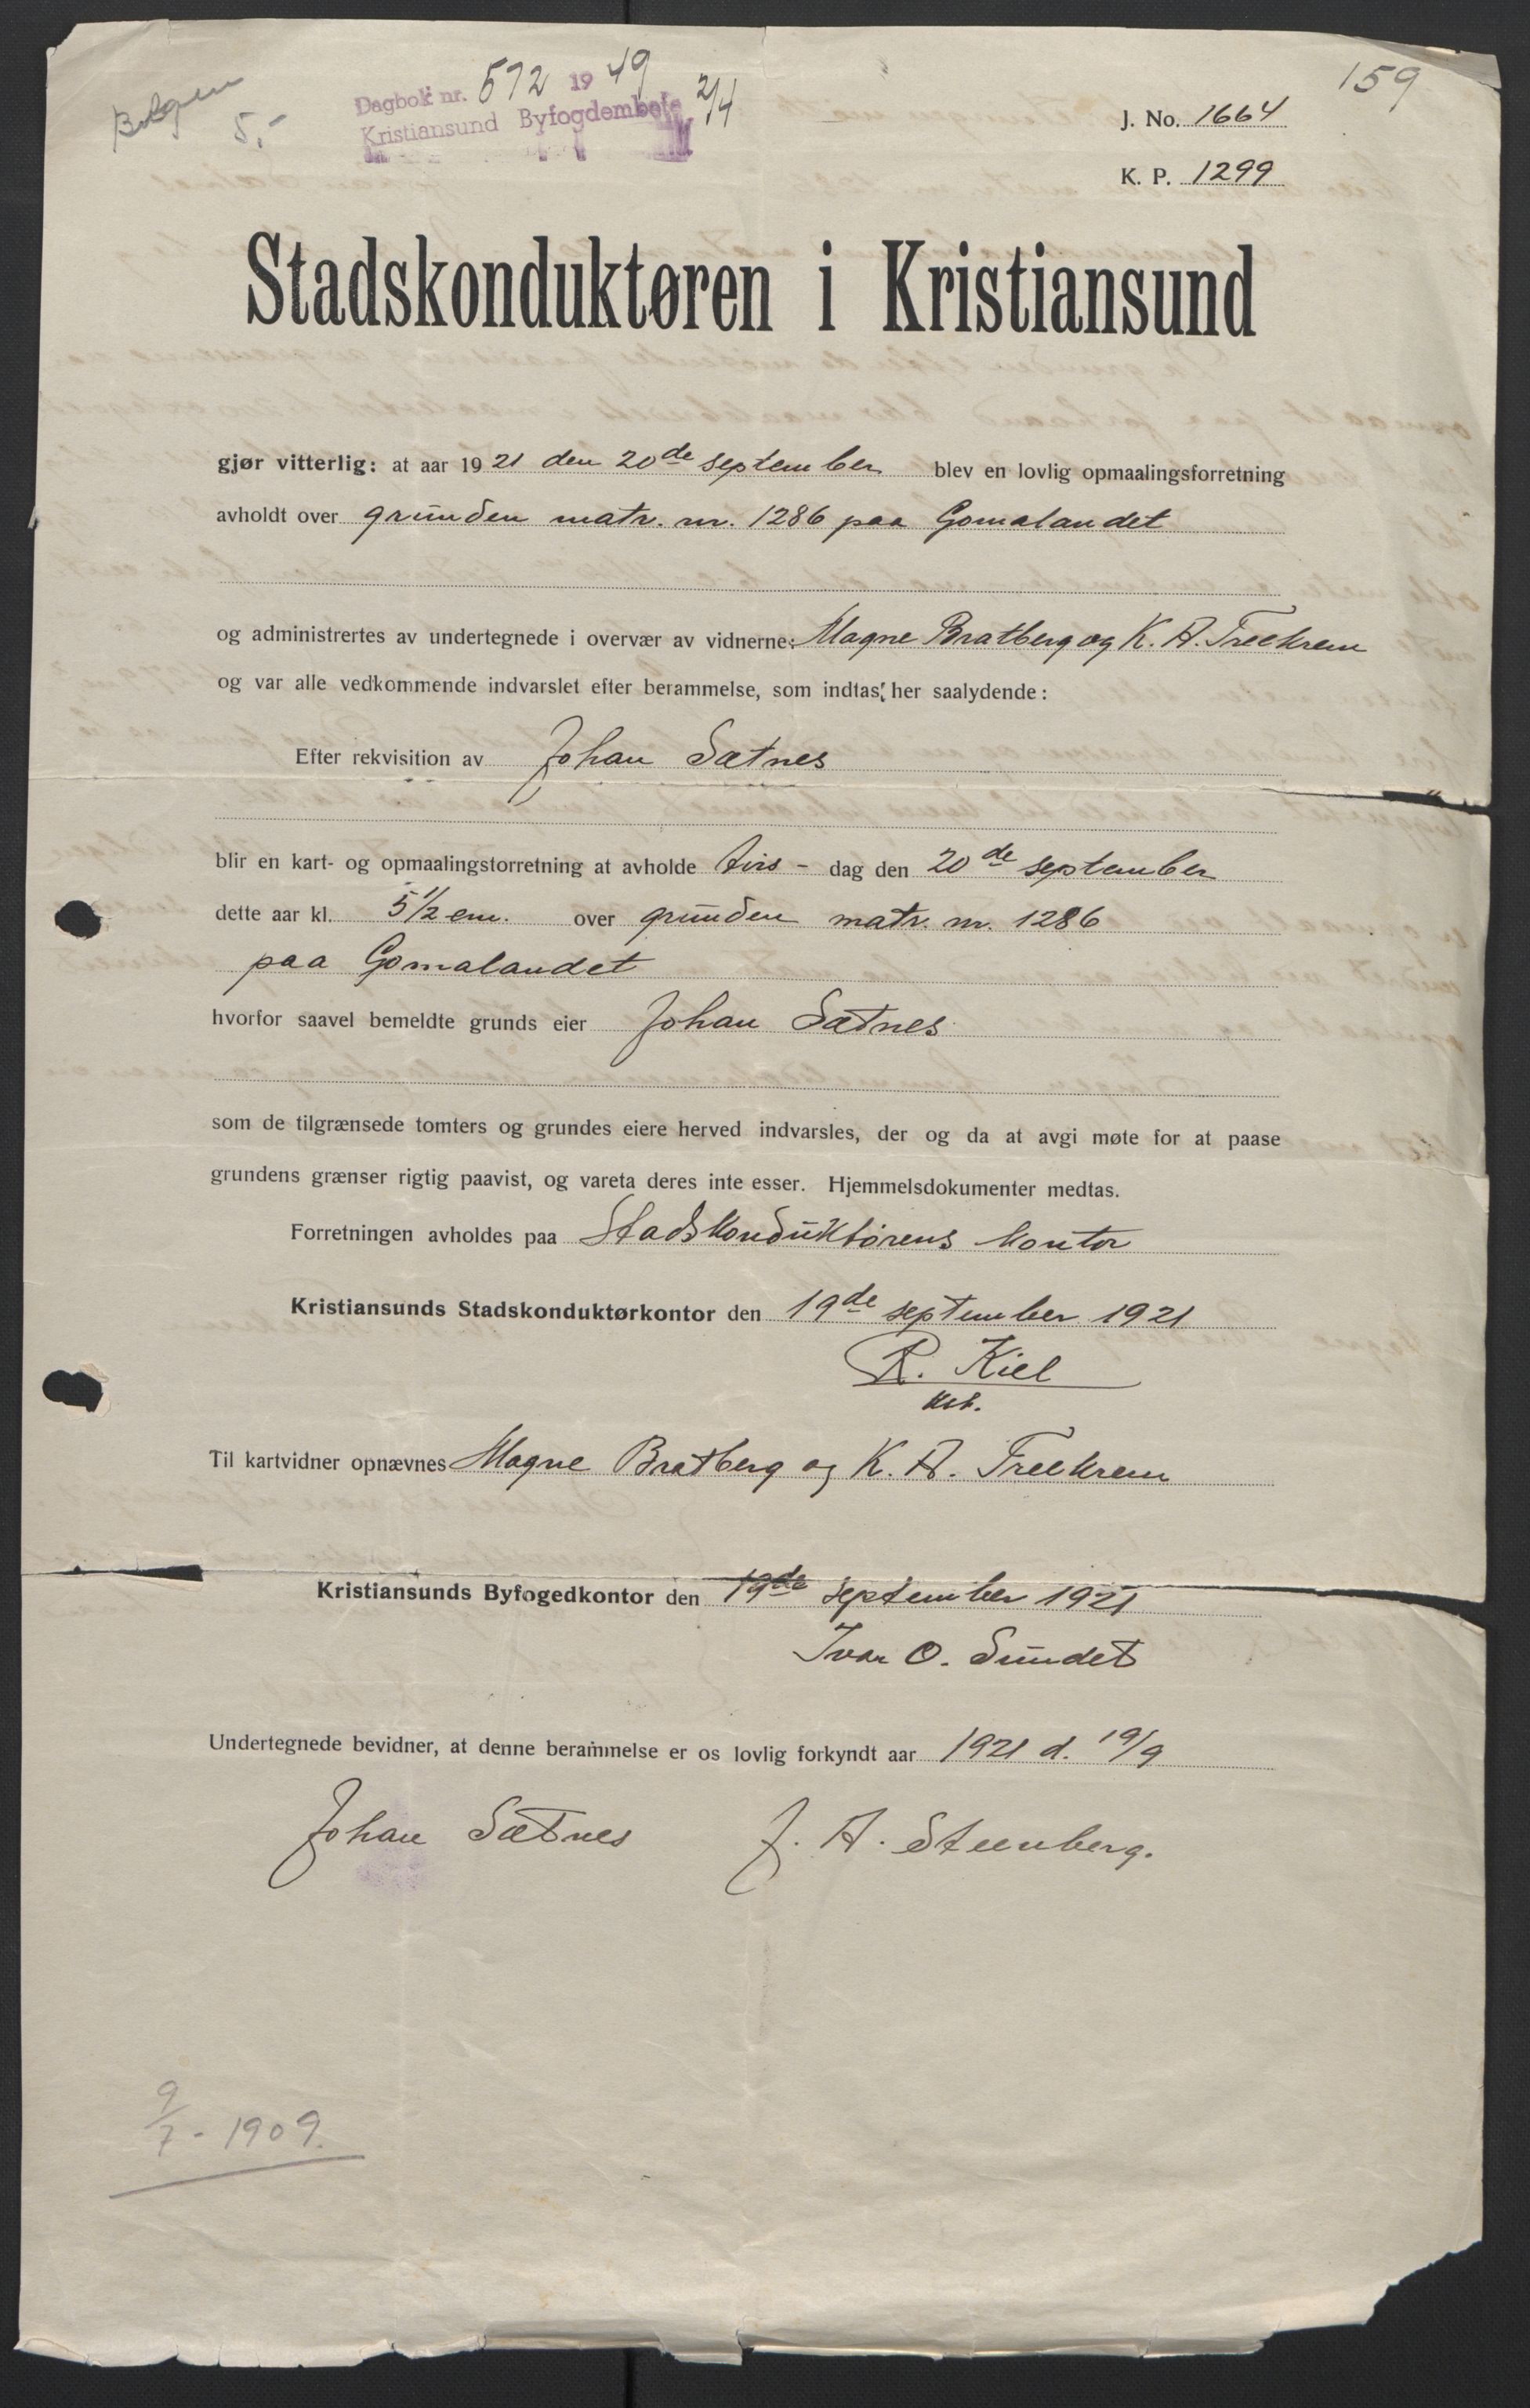 159
5.-
Dagbok nr. 572 1949 2/4
Kristiansund Byfogdembete
J. No. 1664
K. P. 1299
Stadskonduktøren i Kristiansund
gjør vitterlig: at aar 1921 den 20de september blev en lovlig opmaalingsforretning
avholdt over grunden matr. nr. 1286 paa Gomalandet
og administrertes av undertegnede i overvær av vidnerne: Magne Bratberg og K. A. Freekrem
og var alle vedkommende indvarslet efter berammelse, som indtas her saalydende:
Efter rekvisition av Johan Sætnes
blir en kart- og opmaalingstorretning at avholde tirs- dag den 20de september
dette aar kl. 5 1/2 em. over grunden matr. nr. 1286
paa Gomalandet
hvorfor saavel bemeldte grunds eier Johan Sætnes
som de tilgrænsede tomters og grundes eiere herved indvarsles, der og da at avgi møte for at paase
grundens grænser rigtig paavist, og vareta deres inte esser. Hjemmelsdokumenter medtas.
Forretningen avholdes paa Stadskonduktørens kontor
Kristiansunds Stadskonduktørkontor den 19de september 1921
R. Kiel
kst.
Til kartvidner opnævnes Magne Bratberg og K. A. Freekrem
Kristiansunds Byfogedkontor den 19de september 1921
Ivar O. Sundet
Undertegnede bevidner, at denne berammelse er os lovlig forkyndt aar 1921 d. 19/9
Johan Sætnes J. A. Steenberg.
9/7 - 1909.